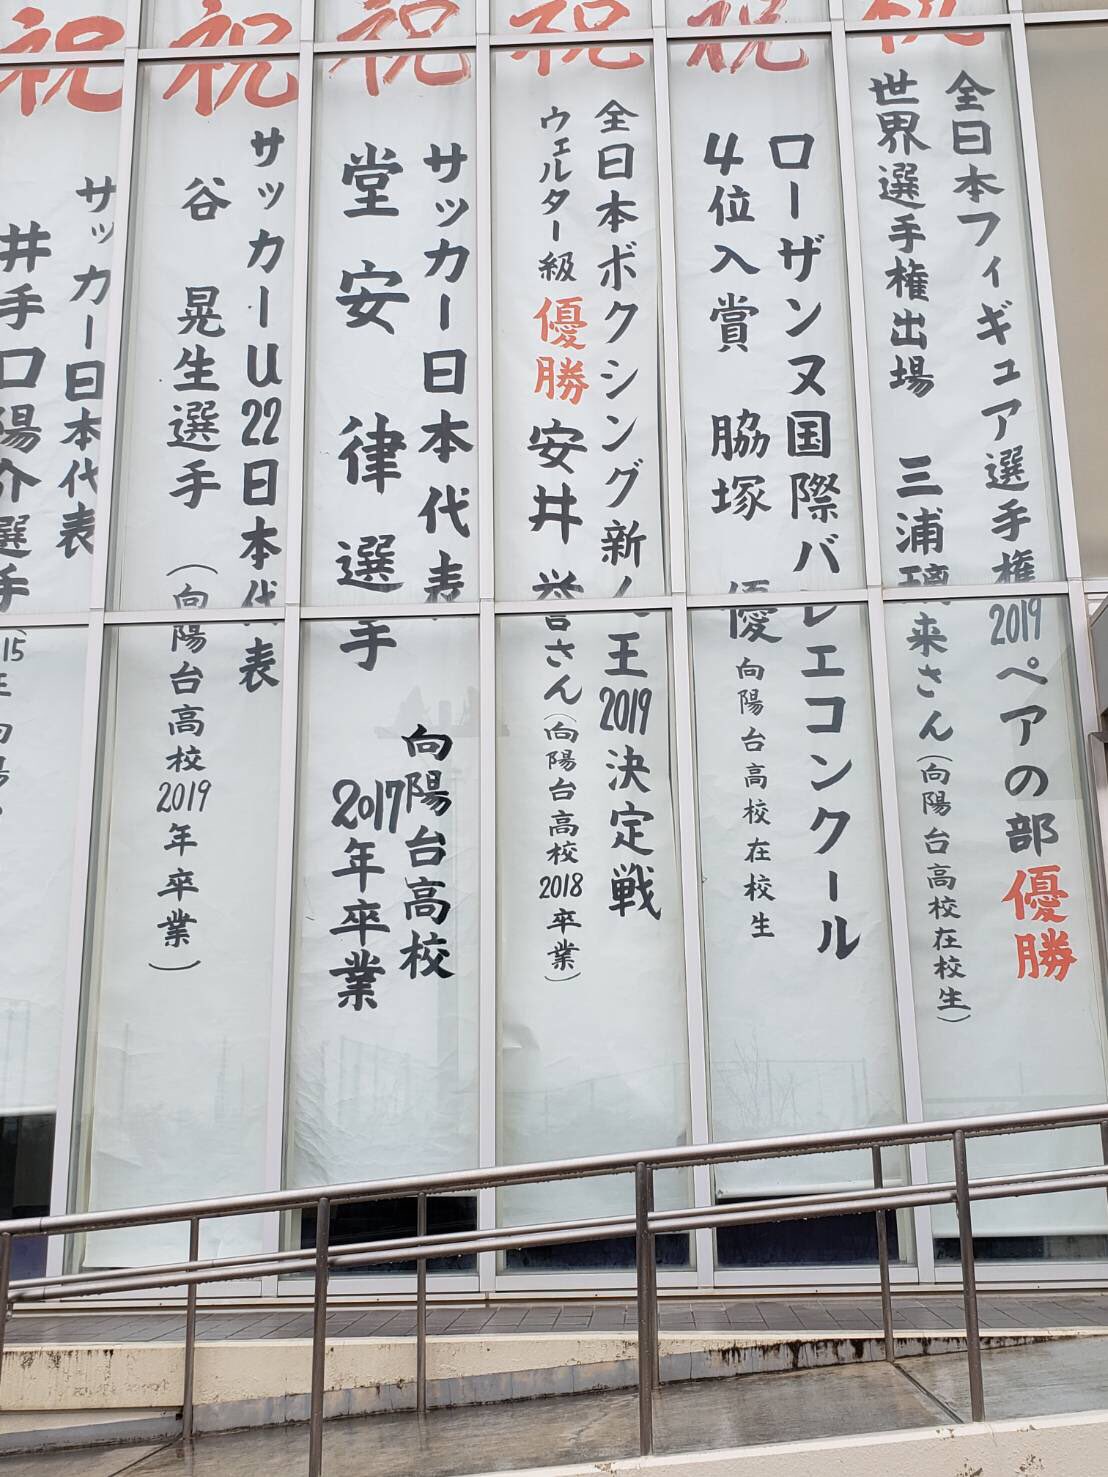 祝
全日本フィギュア選手権2019ペアの部優勝
世界選手権出場 三浦璃来さん(向陽台高校在校生)
祝
ローザンヌ国際バレエコンクール
4位入賞 脇塚 優 向陽台高校在校生
祝
全日本ボクシング新人王2019決定戦
ウェルター級優勝 安井 誉さん(向陽台高校2018卒業)
祝
サッカー日本代表
堂安律選手
向陽台高校
2017年卒業
祝
サッカーU22日本代表
谷 晃生選手 (向陽台高校2019年卒業)
祝
サッカー日本代表
井手口陽介選手